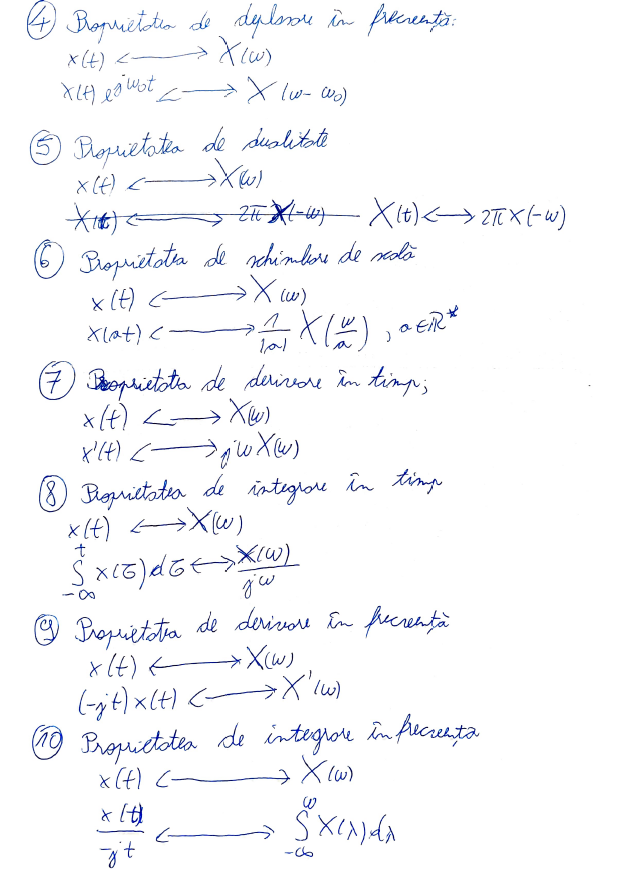 ④ Proprietatea de deplasare în frecvență:
x(t) ⟷ X(ω)
x(t) e^{jω₀t} ⟷ X(ω-ω₀)
⑤ Proprietatea de dualitate
x(t) ⟷ X(ω)
X(t) ⟷ 2π X(-ω) X(t) ⟷ 2π x(-ω)
⑥ Proprietatea de schimbare de scală
x(t) ⟷ X(ω)
x(at) ⟷ 1/|a| X(ω/a), a∈R*
⑦ Proprietatea de derivare în timp;
x(t) ⟷ X(ω)
x'(t) ⟷ jωX(ω)
⑧ Proprietatea de integrare în timp
x(t) ⟷ X(ω)
∫_{-∞}^{t} x(τ)dτ ⟷ X(ω)/jω
⑨ Proprietatea de derivare în frecvență
x(t) ⟷ X(ω)
(-jt)x(t) ⟷ X'(ω)
⑩ Proprietatea de integrare în frecvența
x(t) ⟷ X(ω)
x(t)/-jt ⟷ ∫_{-∞}^{ω} X(λ)dλ